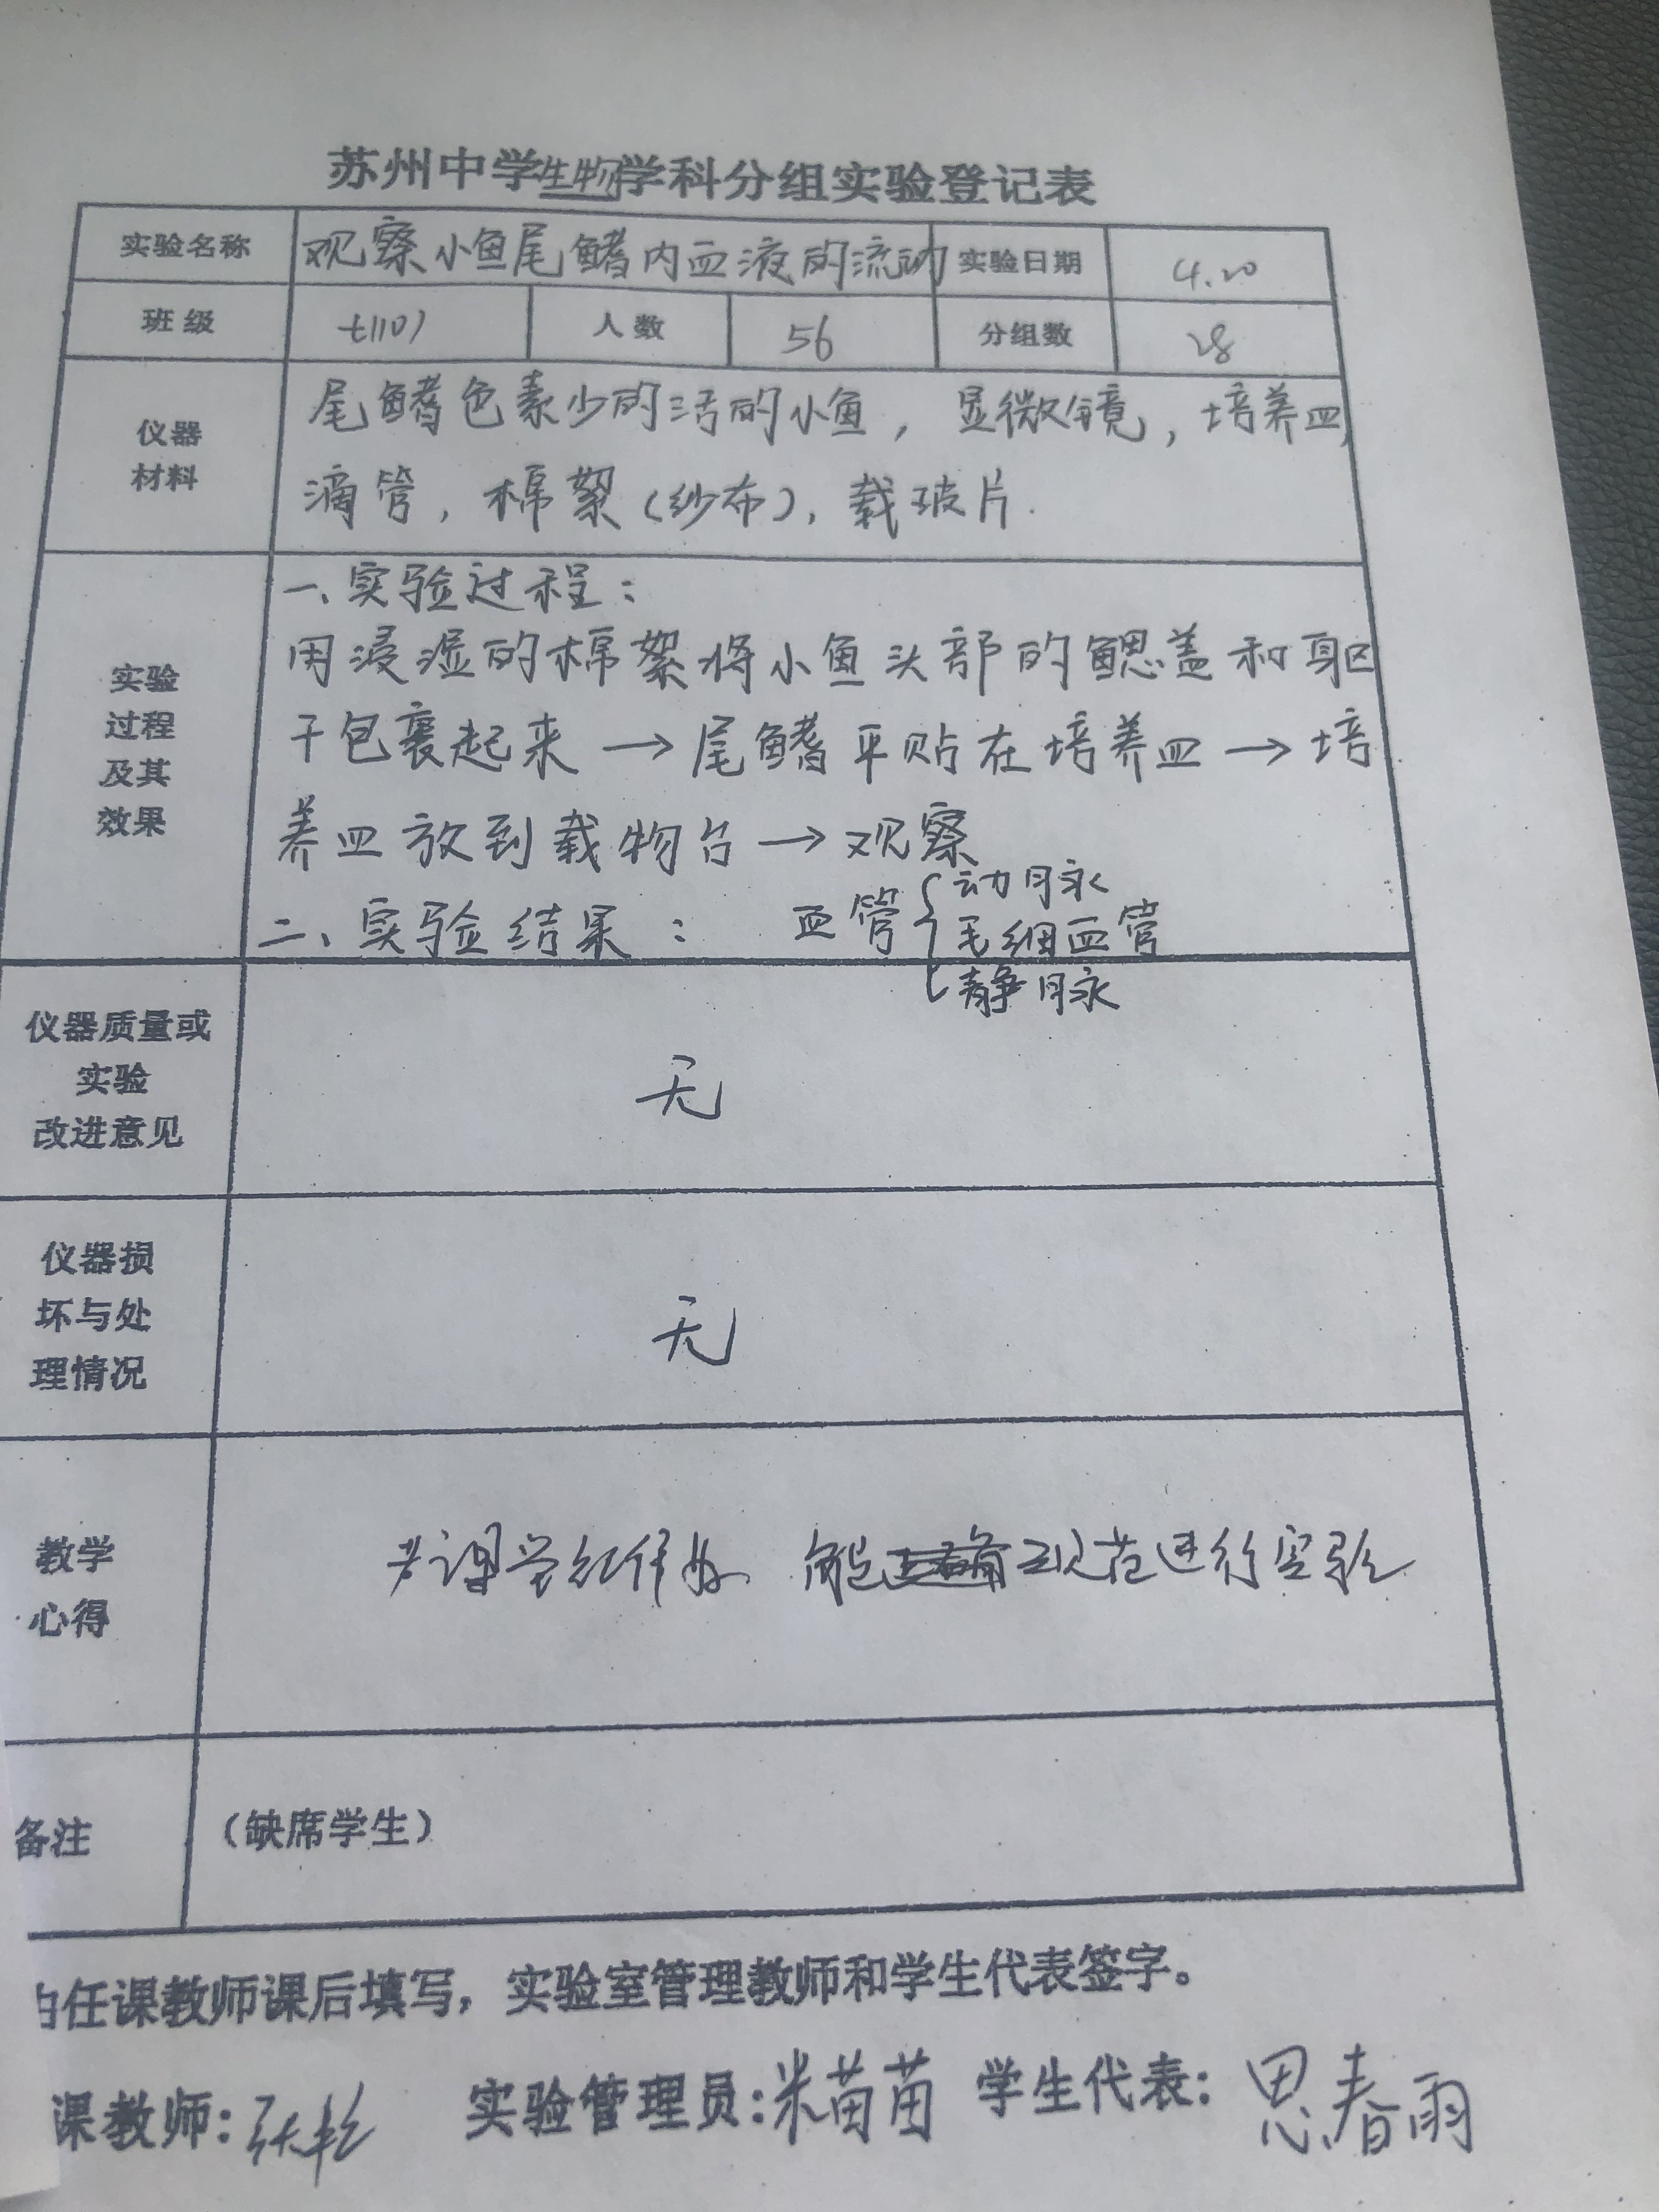 苏州中学生物学科分组实验登记表
实验名称 观察小鱼尾鳍内血液的流动 实验日期 4.20
班级 七(10) 人数 56 分组数 28
仪器
材料
尾鳍色素少的活的小鱼，显微镜，培养皿，
滴管，棉絮(纱布)，载玻片.
实验
过程
及其
效果
一、实验过程：
用浸湿的棉絮将小鱼头部的鳃盖和躯
干包裹起来→尾鳍平贴在培养皿→培
养皿放到载物台→观察
二、实验结果： 血管{动脉
毛细血管
静脉
仪器质量或
实验
改进意见
无
仪器损
坏与处
理情况
无
教学
心得
课堂纪律好 能规范进行实验
备注
（缺席学生）
任课教师课后填写，实验室管理教师和学生代表签字。
课教师: 张 实验管理员: 米苗苗 学生代表: 思春雨